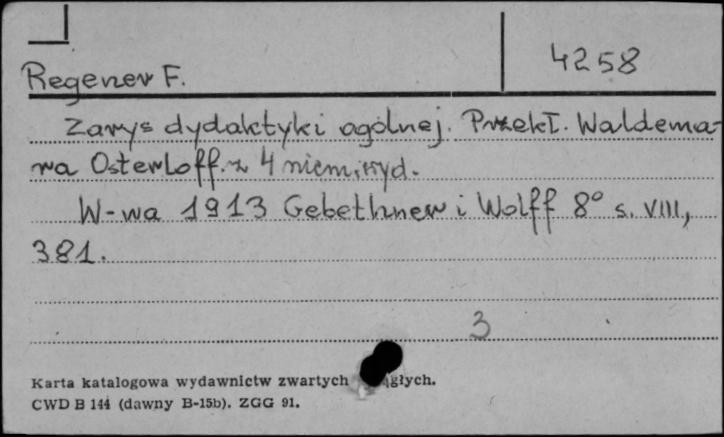 4258
Regener F.
Zarys dydaktyki ogólnej. Przekł. Waldema-
ra Osterloff. z 4 niem. wyd.
W-wa 1913 Gebethner i Wolff 8° s. VIII,
381.
3
Karta katalogowa wydawnictw zwartych głych.
CWD B 144 (dawny B-15b). ZGG 91.